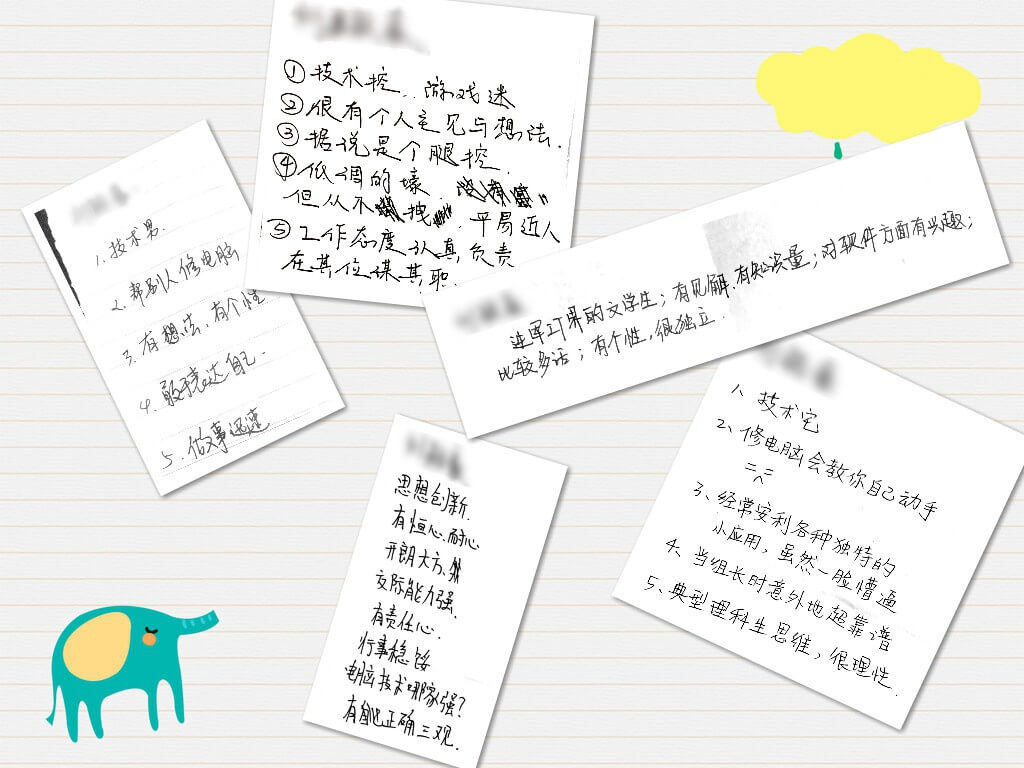 1. 技术男.
2. 帮别人修电脑
3. 有想法, 有个性
4. 敢表达自己.
5. 做事迅速
① 技术控. 游戏迷
② 很有个人主见与想法.
③ 据说是个腿控.
④ 低调的壕.
但从不 拽. 平易近人
⑤ 工作态度认真,负责
在其位谋其职.
进军IT界的文学生; 有见解,有知识量; 对软件方面有兴趣;
比较多话; 有个性, 很独立.
思想创新.
有恒心.耐心
开朗大方、
交际能力强.
有责任心.
行事稳妥
电脑技术哪家强?
有自己正确三观.
1、技术宅
2、修电脑会教你自己动手
=^=
3、经常安利各种独特的
小应用, 虽然一脸懵逼
4、当组长时意外地超靠谱
5、典型理科生思维, 很理性.